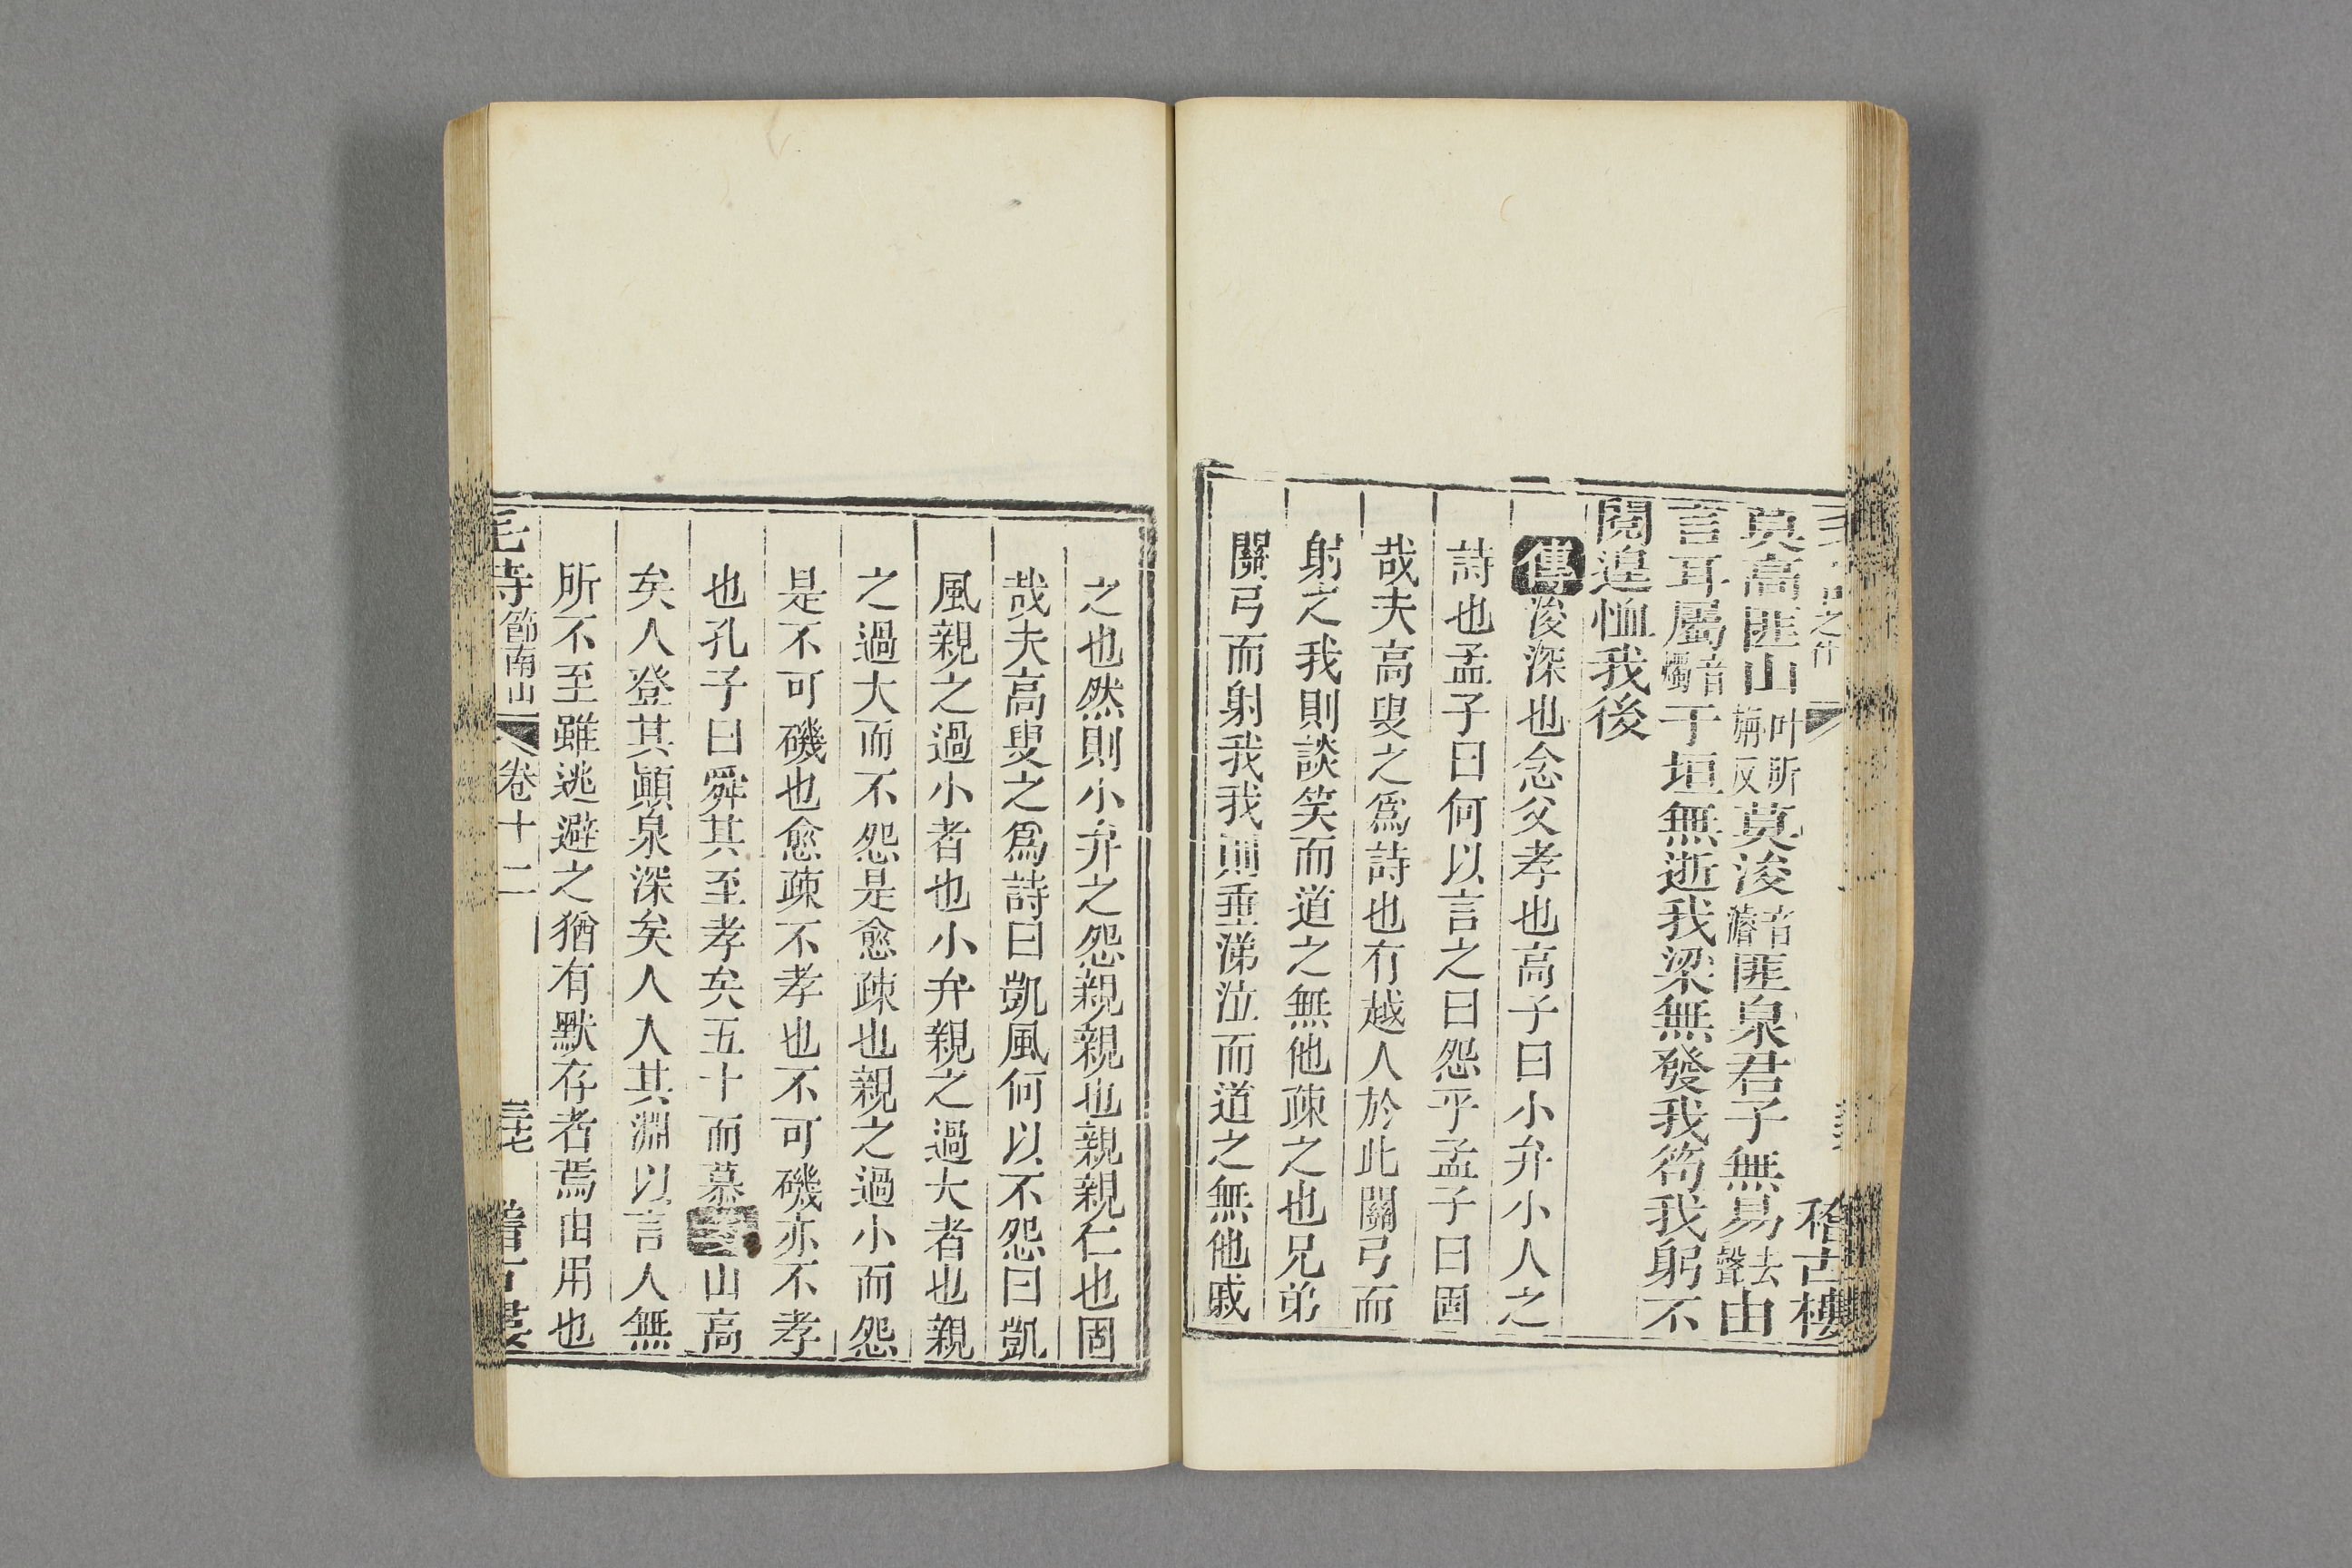 稽古樓
莫高匪山叶所旃反莫浚音濬匪泉君子無易去聲由
言耳屬音燭于垣無逝我梁無發我笱我躬不
閱遑恤我後
傳浚深也念父孝也高子曰小弁小人之
詩也孟子曰何以言之曰怨乎孟子曰固
哉夫高叟之爲詩也有越人於此關弓而
射之我則談笑而道之無他疎之也兄弟
關弓而射我我則垂涕泣而道之無他戚
之也然則小弁之怨親親也親親仁也固
哉夫高叟之爲詩曰凱風何以不怨曰凱
風親之過小者也小弁親之過大者也親
之過大而不怨是愈疎也親之過小而怨
是不可磯也愈疎不孝也不可磯亦不孝
也孔子曰舜其至孝矣五十而慕山高
矣人登其顚泉深矣人入其淵以言人無
所不至雖逃避之猶有默存者焉由用也
毛詩節南山 卷十二